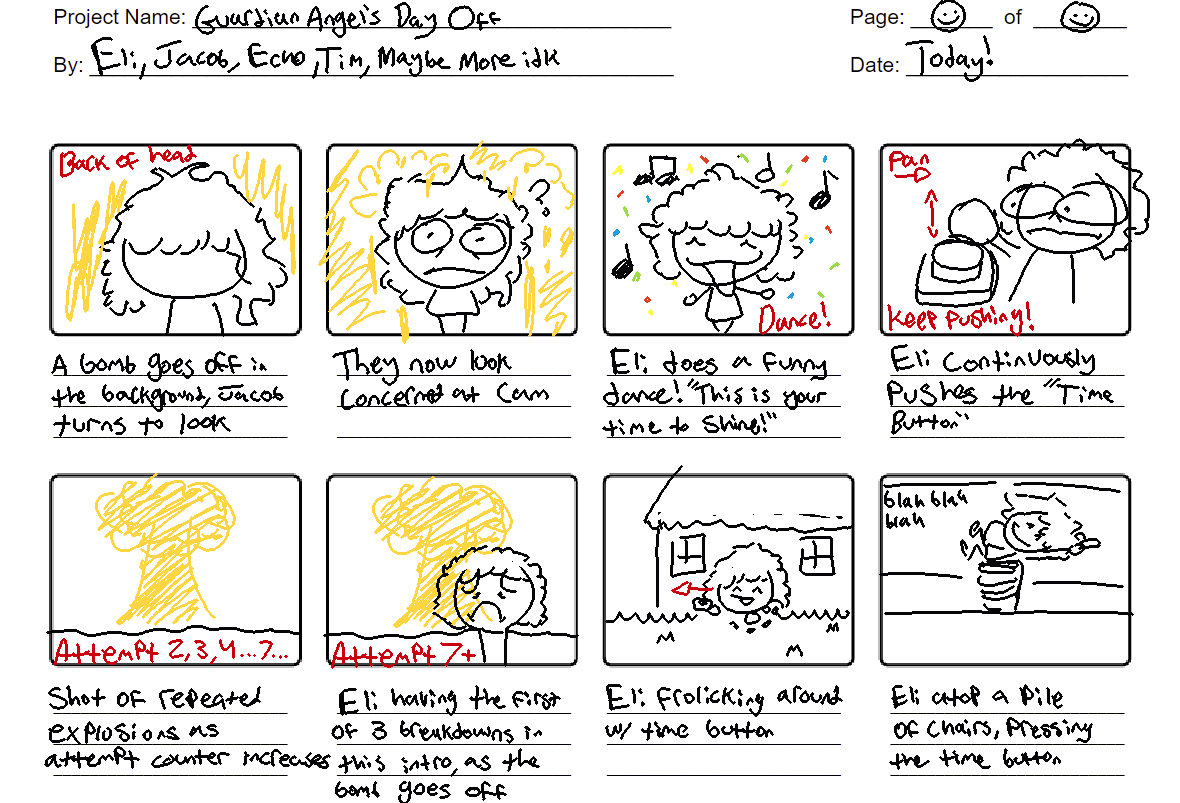 Project Name: Guardian Angel's Day Off
Page: of
By: Eli, Jacob, Echo, Tim, Maybe More idk
Date: Today!
Back of head
A bomb goes off in
the background, Jacob
turns to look
They now look
concerned at Cam
Dance!
Eli does a funny
dance! "This is your
time to Shine!"
Pan
Keep pushing!
Eli Continuously
Pushes the "Time
Button"
Attempt 2,3,4...7...
Shot of repeated
explosions as
attempt counter increases
Attempt 7+
Eli having the first
of 3 breakdowns in
this intro, as the
bomb goes off
Eli frolicking around
w/ time button
blah blah
blah
Eli atop a pile
of chairs, Pressing
the time button